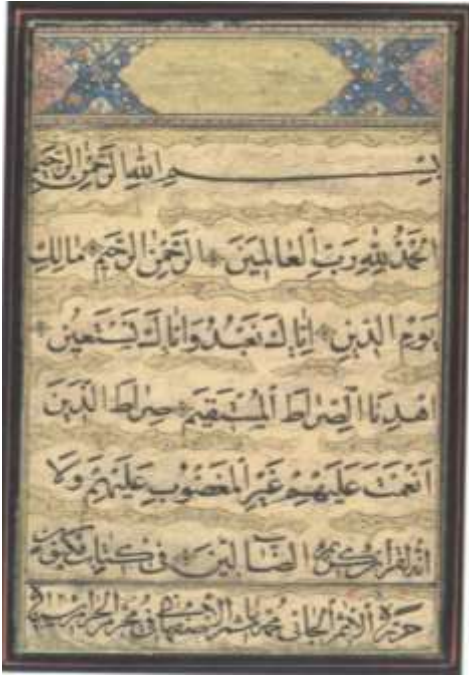 بِسْمِ اللهِ الرَّحْمٰنِ الرَّحِيمِ
اَلْحَمْدُ لِلّٰهِ رَبِّ الْعَالَمِينَ الرَّحْمٰنِ الرَّحِيمِ مَالِكِ
يَوْمِ الدِّينِ اِيَّاكَ نَعْبُدُ وَاِيَّاكَ نَسْتَعِينُ
اِهْدِنَا الصِّرَاطَ الْمُسْتَقِيمَ صِرَاطَ الَّذِينَ
اَنْعَمْتَ عَلَيْهِمْ غَيْرِ الْمَغْضُوبِ عَلَيْهِمْ وَلَا
الضَّالِّينَ اِنَّهُ لَقُرْاٰنٌ كَرِيمٌ فِي كِتَابٍ مَكْنُونٍ
حرره الجاني محمد في محرم الحرام